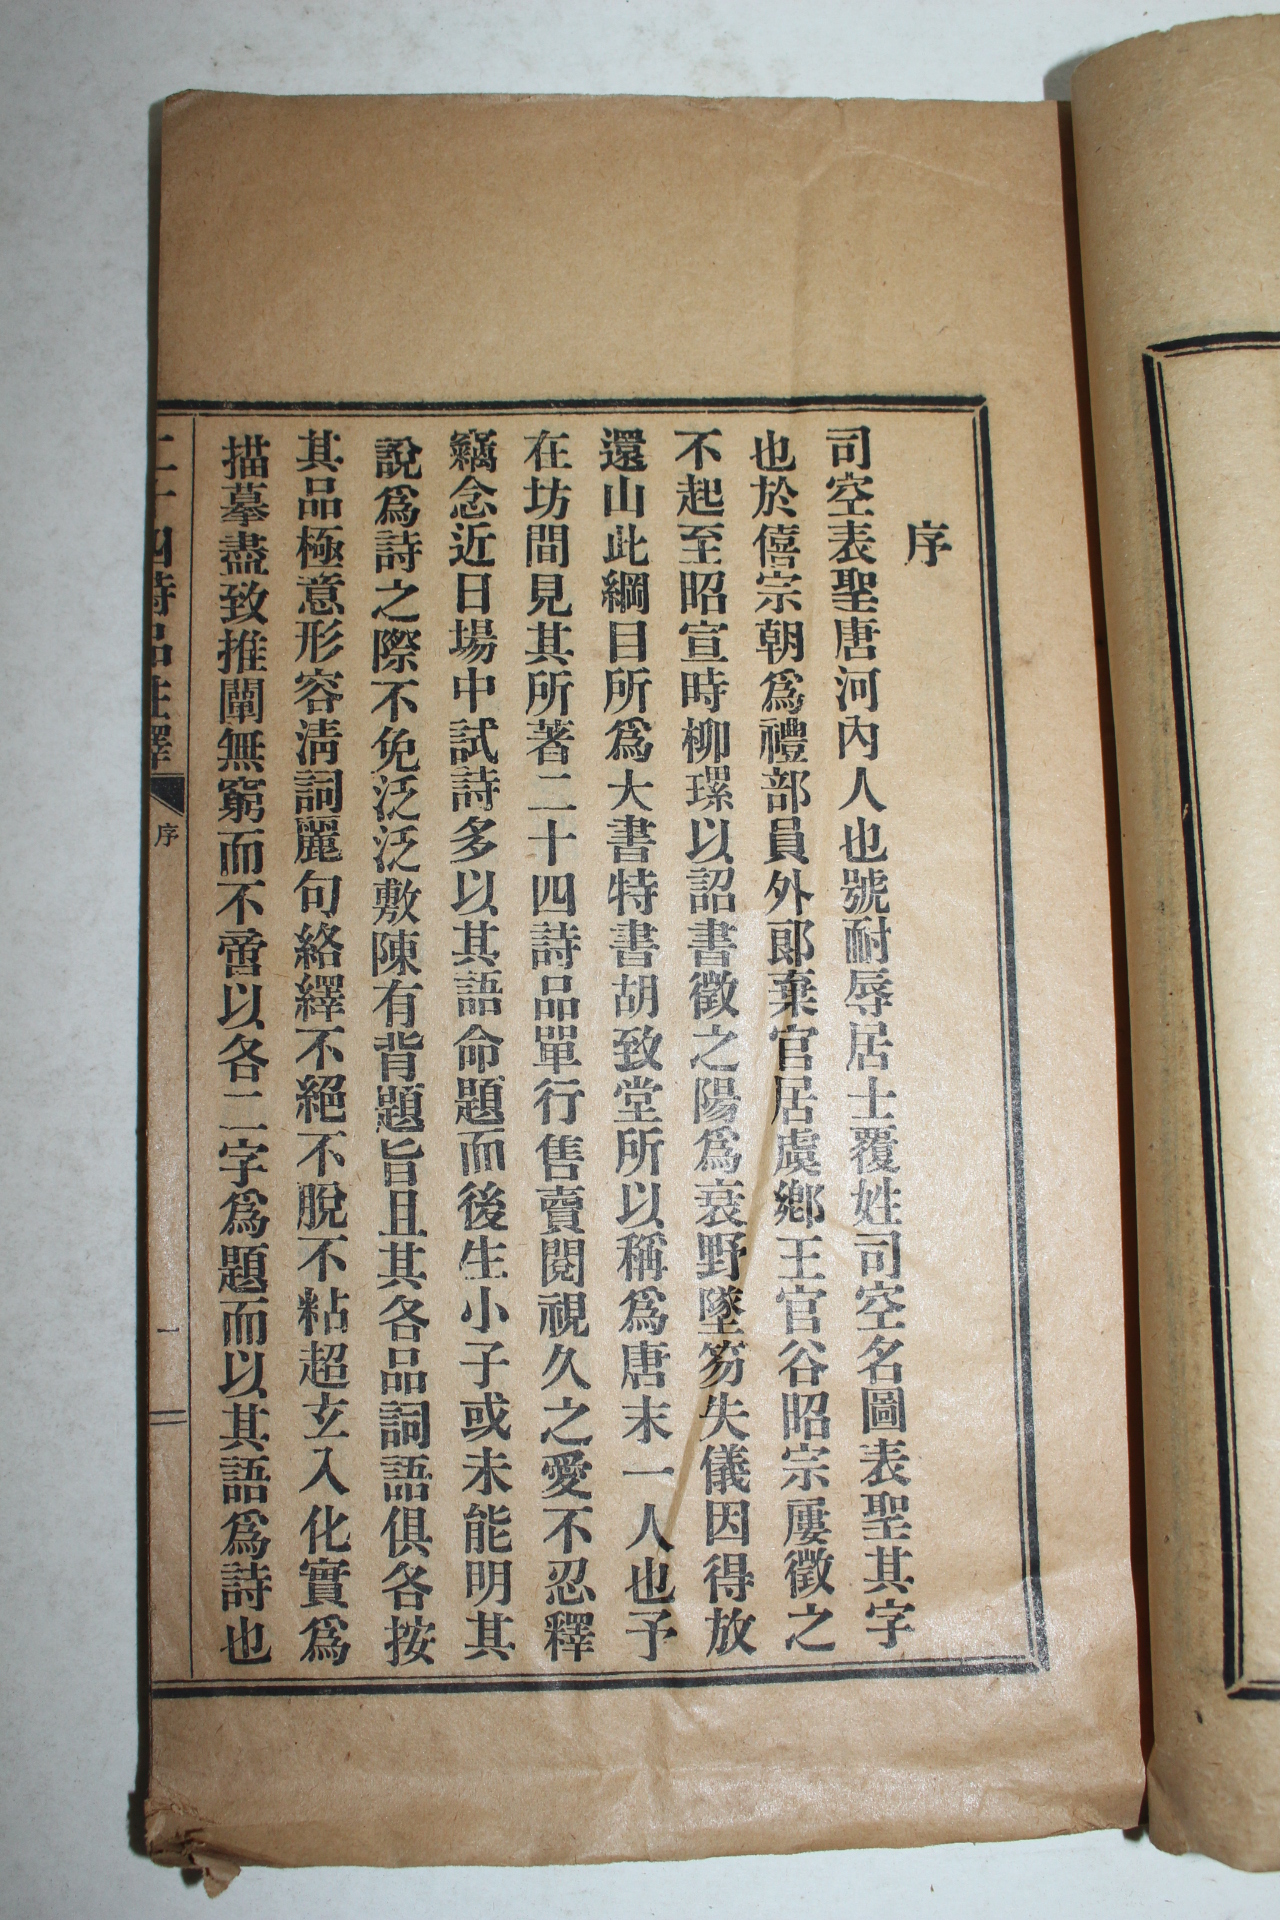 序
司空表聖唐河內人也號耐辱居士覆姓司空名圖表聖其字
也於僖宗朝爲禮部員外郞棄官居虞鄉王官谷昭宗屢徵之
不起至昭宣時柳璨以詔書徵之陽爲衰野墜笏失儀因得放
還山此綱目所爲大書特書胡致堂所以稱爲唐末一人也予
在坊間見其所著二十四詩品單行售賣閱視久之愛不忍釋
竊念近日場中試詩多以其語命題而後生小子或未能明其
說爲詩之際不免泛泛敷陳有背題旨且其各品詞語俱各按
其品極意形容淸詞麗句絡繹不絕不脫不粘超玄入化實爲
描摹盡致推闡無窮而不啻以各二字爲題而以其語爲詩也
二十四詩品註釋
序
一